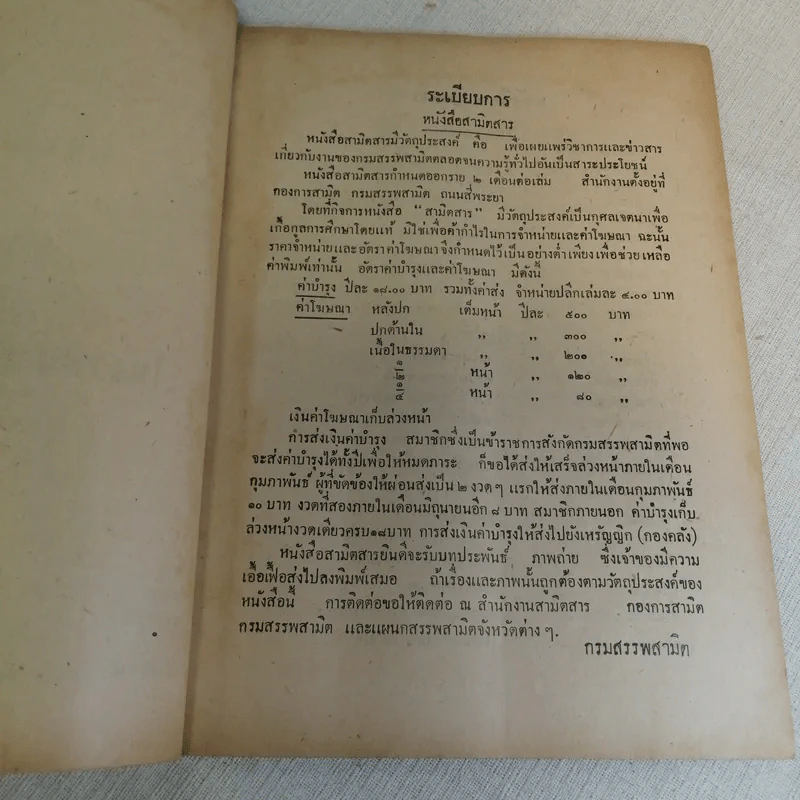 ระเบียบการ
หนังสือสามิตสาร
หนังสือสามิตสารมีวัตถุประสงค์ คือ เพื่อเผยแพร่วิชาการและข่าวสาร
เกี่ยวกับงานของกรมสรรพสามิตตลอดจนความรู้ทั่วไปอันเป็นสาระประโยชน์
หนังสือสามิตสารกำหนดออกราย ๒ เดือนต่อเล่ม สำนักงานตั้งอยู่ที่
กองการสามิต กรมสรรพสามิต ถนนสี่พระยา
โดยที่กิจการหนังสือ “สามิตสาร” มีวัตถุประสงค์เป็นกุศลเจตนาเพื่อ
เกื้อกูลการศึกษาโดยแท้ มิใช่เพื่อค้ากำไรในการจำหน่ายและค่าโฆษณา ฉะนั้น
ราคาจำหน่ายและอัตราค่าโฆษณาจึงกำหนดไว้เป็นอย่างต่ำเพียงเพื่อช่วยเหลือ
ค่าพิมพ์เท่านั้น อัตราค่าบำรุงและค่าโฆษณา มีดังนี้
ค่าบำรุง ปีละ ๑๘.๐๐ บาท รวมทั้งค่าส่ง จำหน่ายปลีกเล่มละ ๔.๐๐ บาท
ค่าโฆษณา หลังปก เต็มหน้า ปีละ ๕๐๐ บาท
ปกด้านใน ,, ,, ๓๐๐ ,,
เนื้อในธรรมดา ,, ,, ๒๐๐ ,,
๑/๒ หน้า ,, ๑๒๐ ,,
๑/๔ หน้า ,, ๘๐ ,,
เงินค่าโฆษณาเก็บล่วงหน้า
การส่งเงินค่าบำรุง สมาชิกซึ่งเป็นข้าราชการสังกัดกรมสรรพสามิตที่พอ
จะส่งค่าบำรุงได้ทั้งปีเพื่อให้หมดภาระ ก็ขอได้ส่งให้เสร็จล่วงหน้าภายในเดือน
กุมภาพันธ์ ผู้ที่ขัดข้องให้ผ่อนส่งเป็น ๒ งวดๆ แรกให้ส่งภายในเดือนกุมภาพันธ์
๑๐ บาท งวดที่สองภายในเดือนมิถุนายนอีก ๘ บาท สมาชิกภายนอก ค่าบำรุงเก็บ
ล่วงหน้างวดเดียวครบ๑๘บาท การส่งเงินค่าบำรุงให้ส่งไปยังเหรัญญิก (กองคลัง)
หนังสือสามิตสารยินดีจะรับบทประพันธ์ ภาพถ่าย ซึ่งเจ้าของมีความ
เอื้อเฟื้อส่งไปลงพิมพ์เสมอ ถ้าเรื่องและภาพนั้นถูกต้องตามวัตถุประสงค์ของ
หนังสือนี้ การติดต่อขอให้ติดต่อ ณ สำนักงานสามิตสาร กองการสามิต
กรมสรรพสามิต และแผนกสรรพสามิตจังหวัดต่าง ๆ.
กรมสรรพสามิต